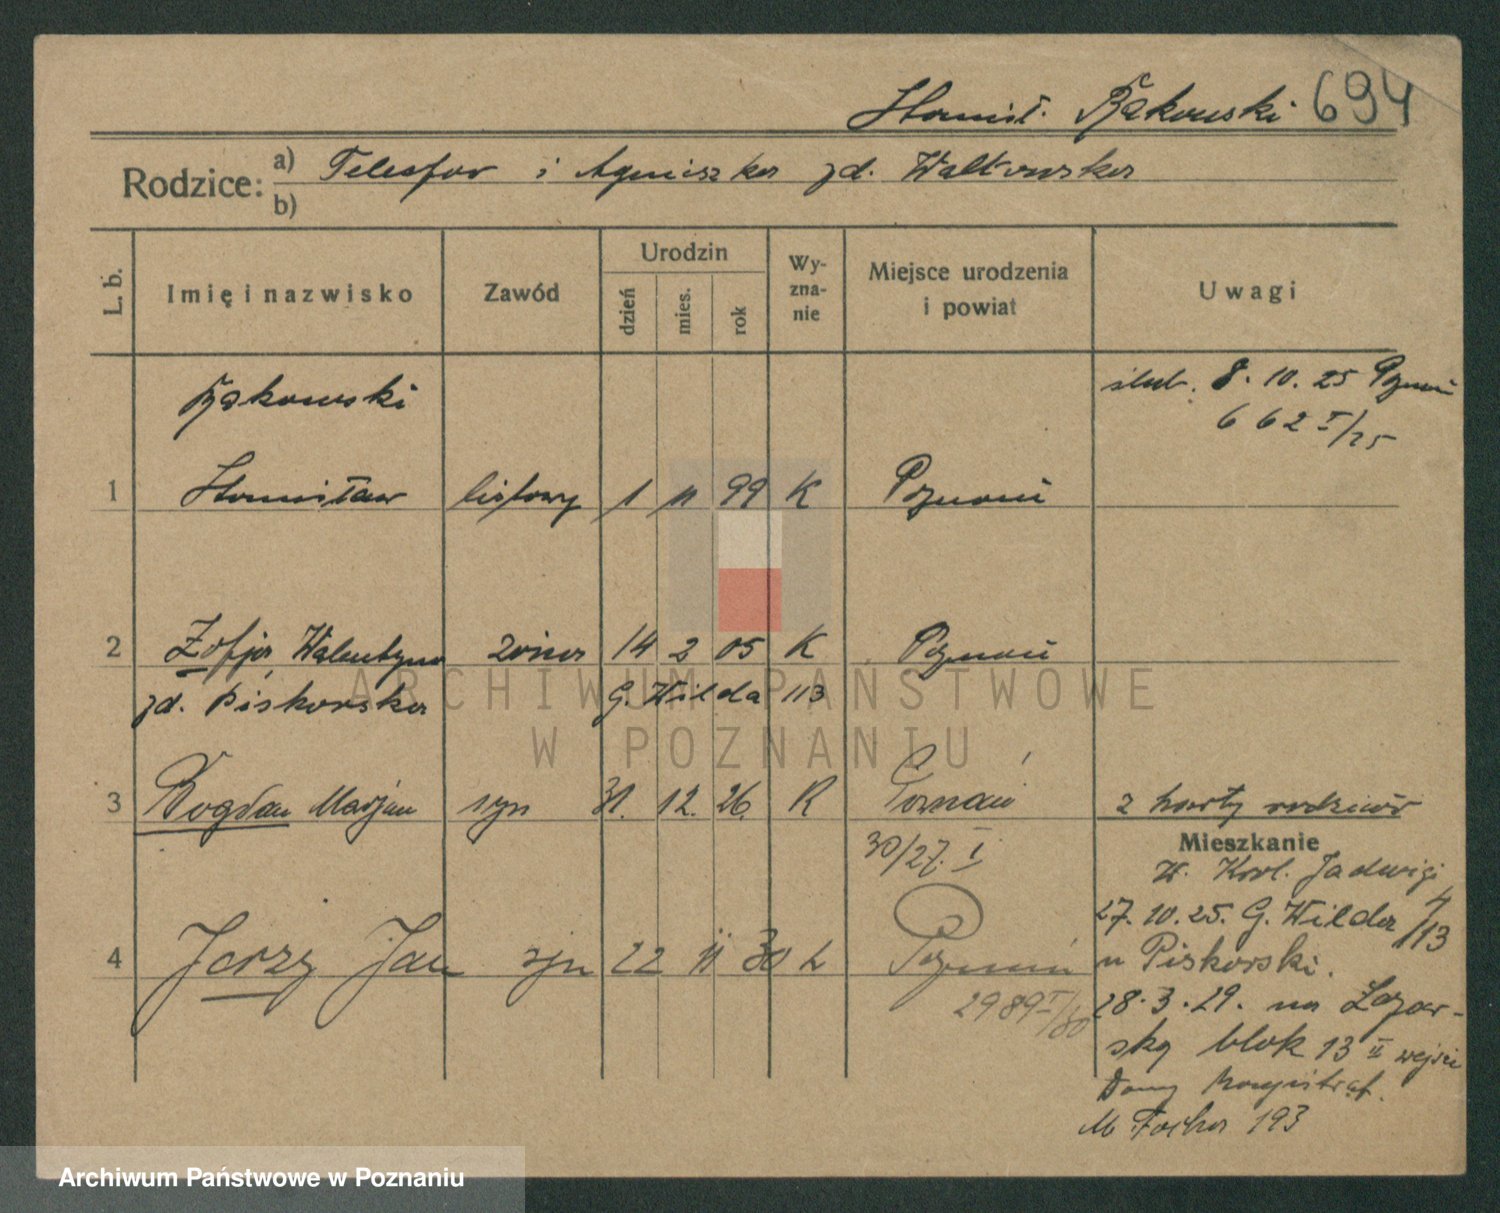 Stanisł. Bąkowski 694
Rodzice: a) Telesfor i Agnieszka zd. Walkowska
b)
L. b. Imię i nazwisko Zawód Urodzin dzień mies. rok Wy-zna-nie Miejsce urodzenia i powiat Uwagi
Bąkowski ślub. 8. 10. 25 Poznań
662 I/25
1 Stanisław listowy 1 11 99 K Poznań
2 Zofja Walentyna żona 14 2 05 K Poznań
zd. Piskorska G. Wilda 113
3 Bogdan Marjan syn 31. 12. 26. K Poznań z karty rodziców
30/27. I
Mieszkanie
W. Król. Jadwigi
27. 10. 25. G. Wilda 113
4 Jerzy Jan syn 22 11 30 K Poznań
u Piskorski.
2989 I/30
28. 3. 29. na Łazar-
ską blok 13 II wejści
Domy Magistrat.
M. Focha 193
ARCHIWUM PAŃSTWOWE
W POZNANIU
Archiwum Państwowe w Poznaniu